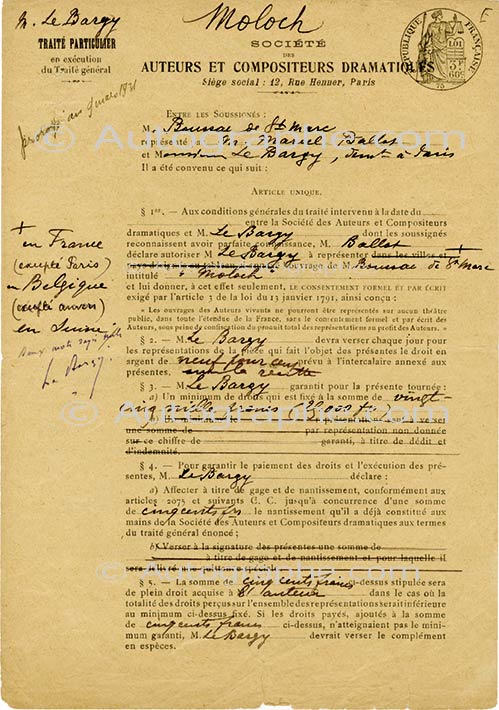 M. Le Bargy
TRAITÉ PARTICULIER
en exécution
du Traité général
Moloch
SOCIÉTÉ
DES
AUTEURS ET COMPOSITEURS DRAMATIQUES
Siège social : 12, Rue Henner, Paris
RÉPUBLIQUE FRANÇAISE
LOI
3F
60c
75
E
ENTRE LES SOUSSIGNÉS :
M. de St Marc
représenté par M. Marcel Ballot
et Monsieur Le Bargy, demt à Paris
Il a été convenu ce qui suit :
ARTICLE UNIQUE.
§ 1er. — Aux conditions générales du traité intervenu à la date du
entre la Société des Auteurs et Compositeurs
dramatiques et M. Le Bargy dont les soussignés
reconnaissent avoir parfaite connaissance, M. Ballot
déclare autoriser M. Le Bargy à représenter dans les villes et
ouvrage de M. de St Marc
intitulé Moloch
et lui donner, à cet effet seulement, LE CONSENTEMENT FORMEL ET PAR ÉCRIT
exigé par l'article 3 de la loi du 13 janvier 1791, ainsi conçu :
« Les ouvrages des Auteurs vivants ne pourront être représentés sur aucun théâtre
public, dans toute l'étendue de la France, sans le consentement formel et par écrit des
Auteurs, sous peine de confiscation du produit total des représentations au profit des Auteurs. »
+
en France
(excepté Paris)
en Belgique
(excepté Anvers)
en Suisse
Le Bargy.
§ 2. — M. Le Bargy devra verser chaque jour pour
les représentations de la pièce qui fait l'objet des présentes le droit en
argent de neuf pour cent prévu à l'intercalaire annexé aux
présentes, sur la recette
§ 3. — M. Le Bargy garantit pour la présente tournée :
a) Un minimum de droits qui est fixé à la somme de vingt-
cinq mille francs (25,000 frs)
une somme de par représentation non donnée
sur ce chiffre de garanti, à titre de dédit et
d'indemnité.
§ 4. — Pour garantir le paiement des droits et l'exécution des pré-
sentes, M. Le Bargy déclare :
a) Affecter à titre de gage et de nantissement, conformément aux
articles 2075 et suivants C. C. jusqu'à concurrence d'une somme
de cinq cents frs le nantissement qu'il a déjà constitué aux
mains de la Société des Auteurs et Compositeurs dramatiques aux termes
du traité général énoncé ;
b) Verser à la signature des présentes une somme de
à titre de gage et de nantissement et pour laquelle il
§ 5. — La somme de cinq cents francs ci-dessus stipulée sera
de plein droit acquise à l'auteur dans le cas où la
totalité des droits perçus sur l'ensemble des représentations serait inférieure
au minimum ci-dessus fixé. Si les droits payés, ajoutés à la somme
de cinq cents francs ci-dessus, n'atteignaient pas le mini-
mum garanti, M. Le Bargy devrait verser le complément
en espèces.
© Autographe.com
© Autographe.com
© Autographe.com